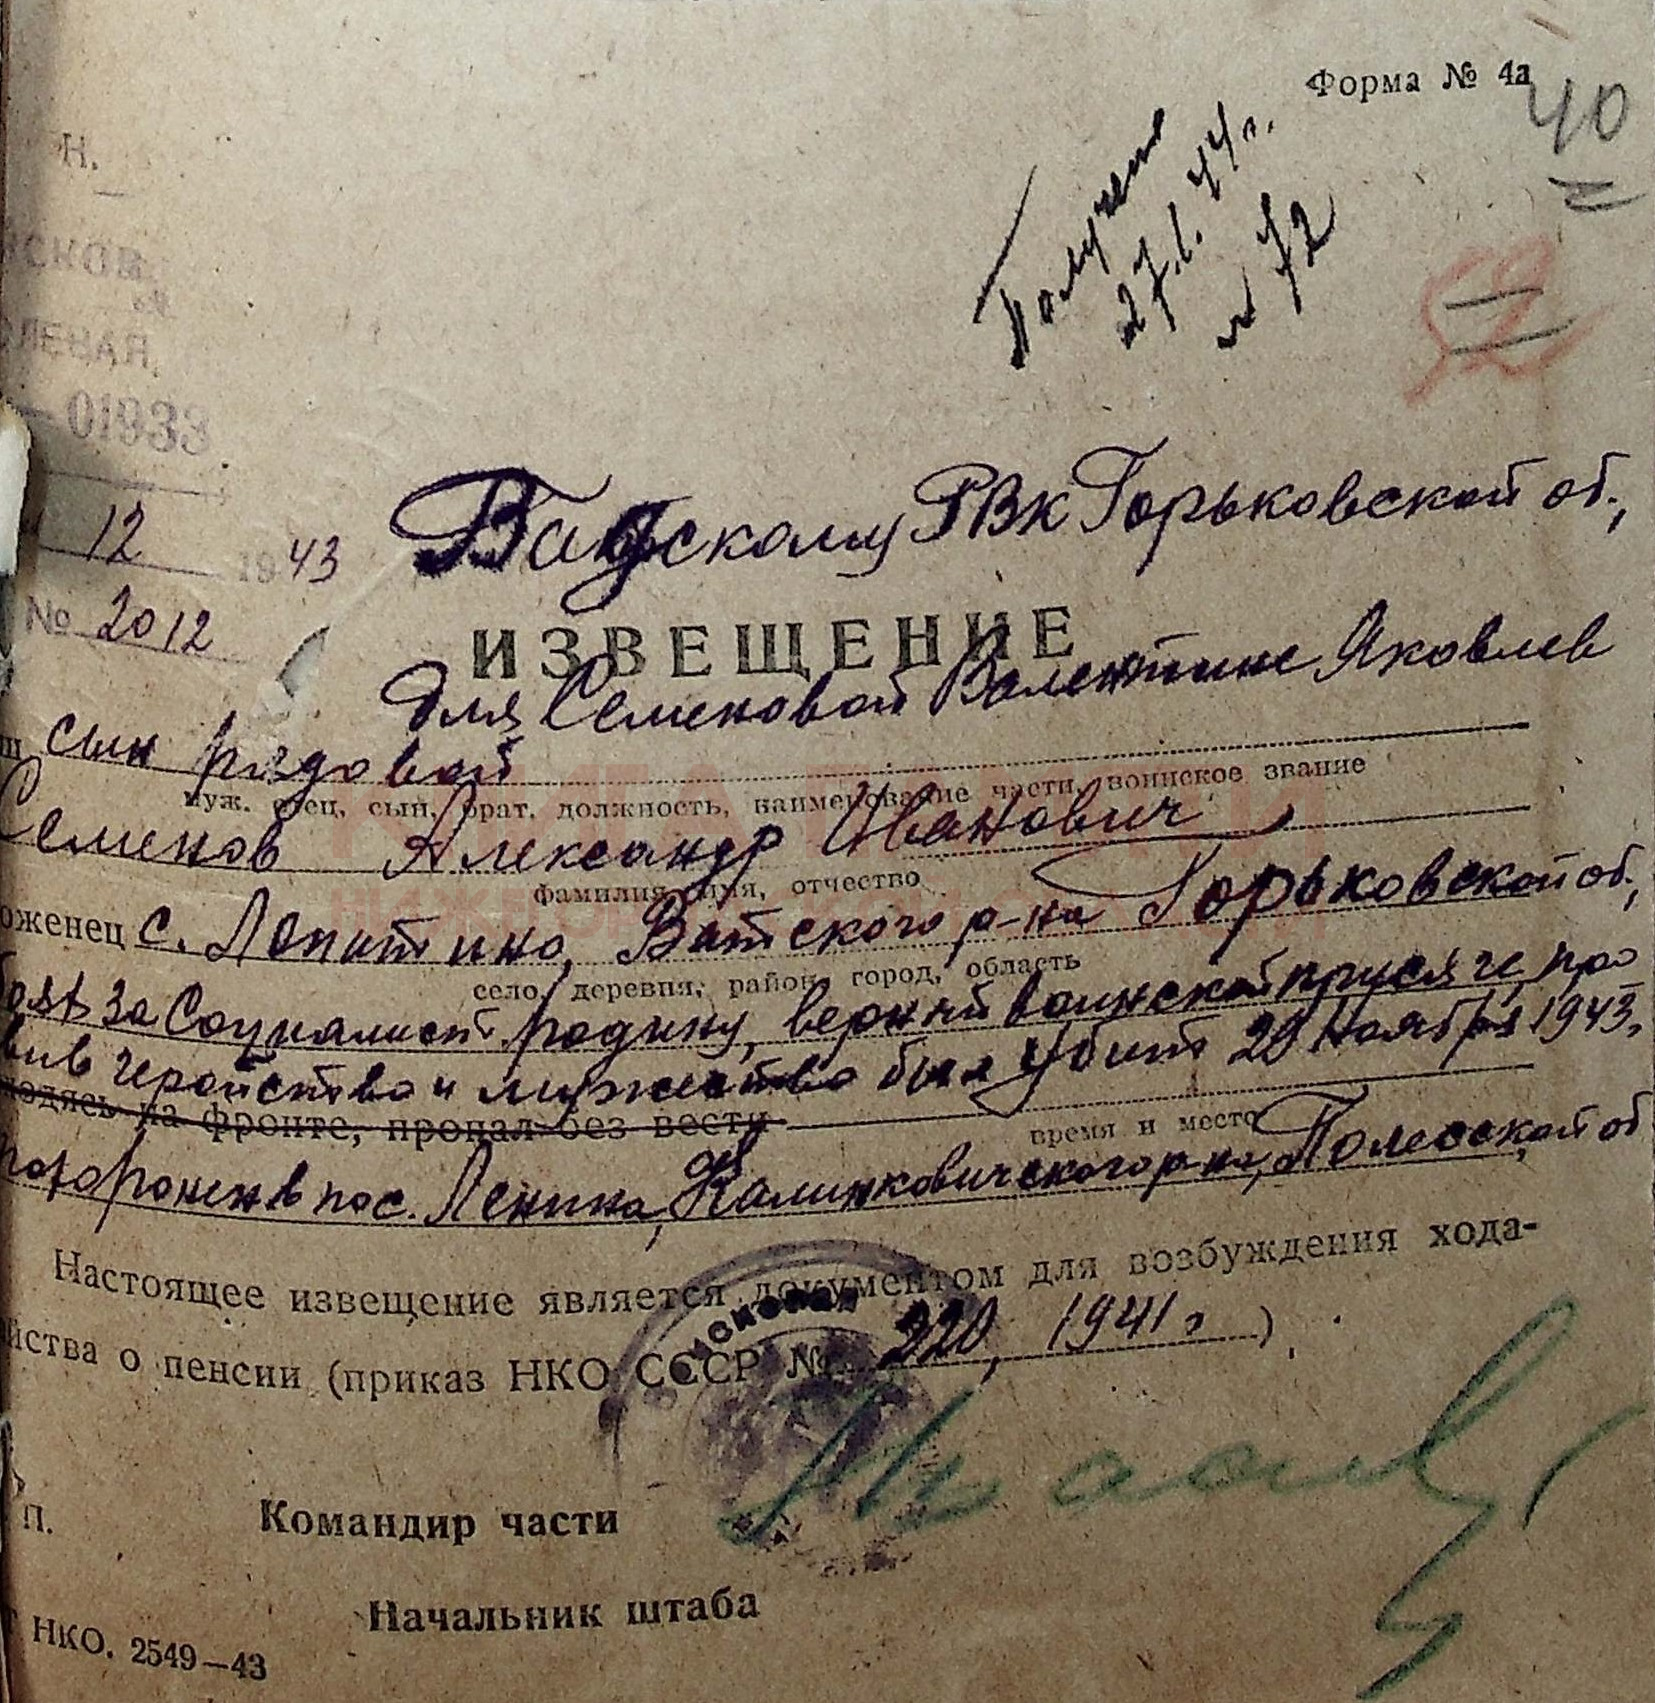 Форма № 4а
40
Н.
Получено
27.1.44 г.
№ 72
СКОВ
ЛЕВАЯ
01933
12 1943
Вадскому РВК Горьковской об.,
№ 2012
ИЗВЕЩЕНИЕ
Для Семеновой Валентине Яковлев
ш сын рядовой
муж, отец, сын, брат, должность, наименование части, воинское звание
Семенов Александр Иванович
фамилия, имя, отчество
оженец с. Лопатино, Ватского р-на Горьковской об.,
село, деревня, район, город, область
за Социалист родину, верный воинской присяге, про
вив геройство и мужество был убит 29 ноября 1943,
ходясь на фронте, пропал без вести
время и место
похоронен в пос. Ленина, Калинковичского р-на, Полесской об
Настоящее извещение является документом для возбуждения хода-
йства о пенсии (приказ НКО СССР № 220, 1941 г ).
П.
Командир части
Начальник штаба
НКО. 2549—43